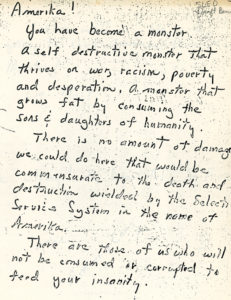 Amerika!
You have become a monster.
A self destructive monster that
thrives on war, racism, poverty
and desperation. A monster that
grows fat by consuming the
sons & daughters of humanity.
There is no amount of damage
we could do here that would be
commensurate to the death and
destruction wielded by the Selective
Service System in the name of
Amerika.
There are those of us who will
not be consumed or corrupted to
feed your insanity.